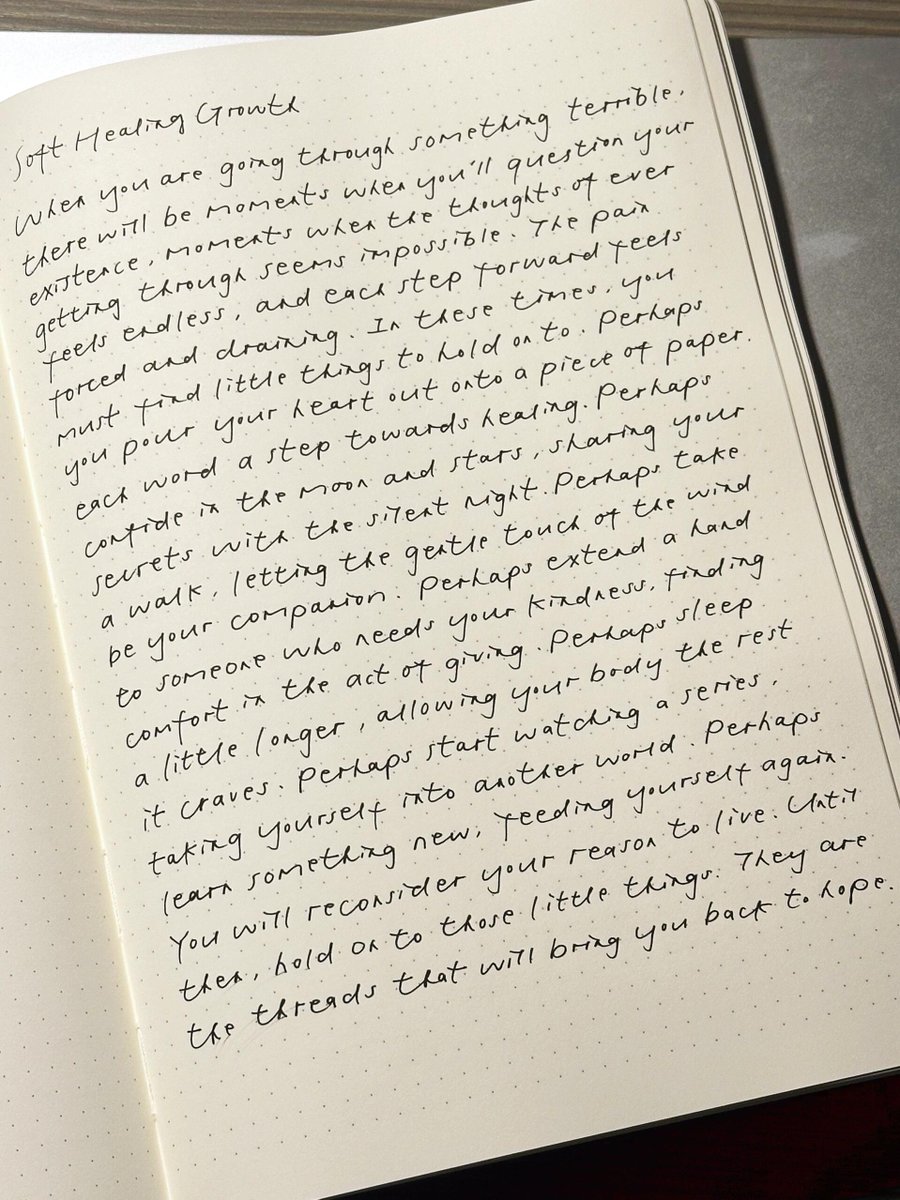 Soft Healing Growth
When you are going through something terrible,
there will be moments when you'll question your
existence, moments when the thoughts of ever
getting through seems impossible. The pain
feels endless, and each step forward feels
forced and draining. In these times, you
must find little things to hold on to. Perhaps
you pour your heart out onto a piece of paper.
each word a step towards healing. Perhaps
confide in the moon and stars, sharing your
secrets with the silent night. Perhaps take
a walk, letting the gentle touch of the wind
be your companion. Perhaps extend a hand
to someone who needs your kindness, finding
comfort in the act of giving. Perhaps sleep
a little longer, allowing your body the rest
it craves. Perhaps start watching a series,
taking yourself into another world. Perhaps
learn something new, feeding yourself again.
You will reconsider your reason to live. Until
then, hold on to those little things. They are
the threads that will bring you back to hope.